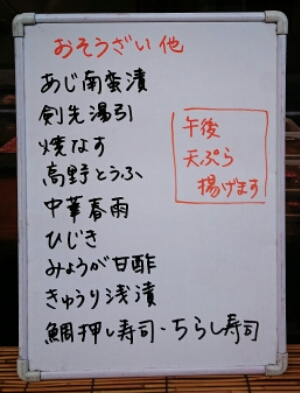 おそうざい他
あじ南蛮漬
剣先湯引
焼なす
高野とうふ
中華春雨
ひじき
みょうが甘酢
きゅうり浅漬
鯛押し寿司・ちらし寿司
午後
天ぷら
揚げます